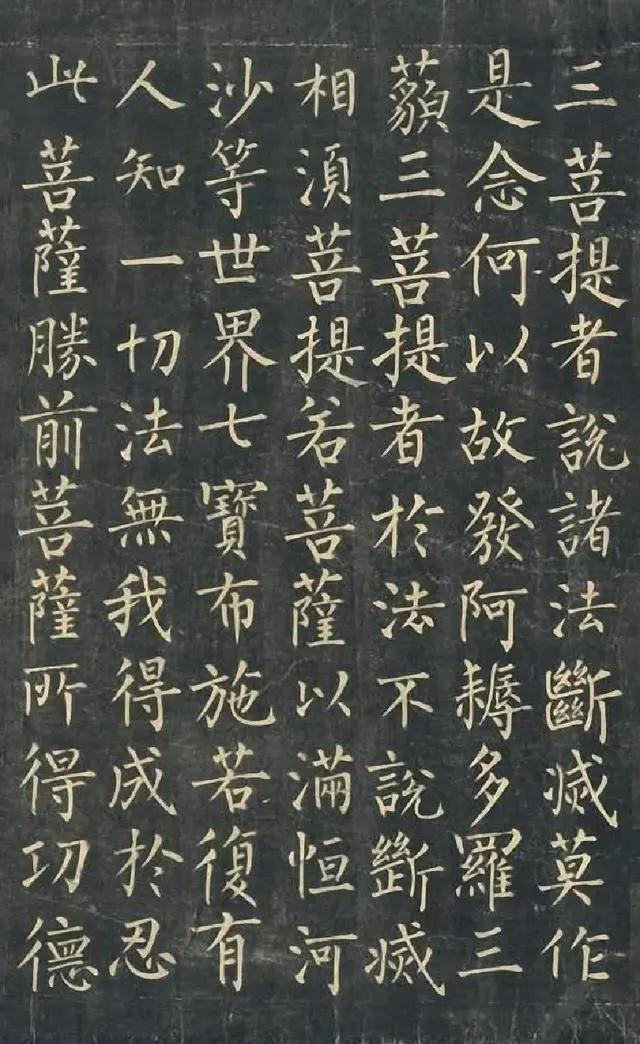 三菩提者說諸法斷滅莫作
是念何以故發阿耨多羅三
藐三菩提者於法不說斷滅
相須菩提若菩薩以滿恒河
沙等世界七寶布施若復有
人知一切法無我得成於忍
此菩薩勝前菩薩所得功德